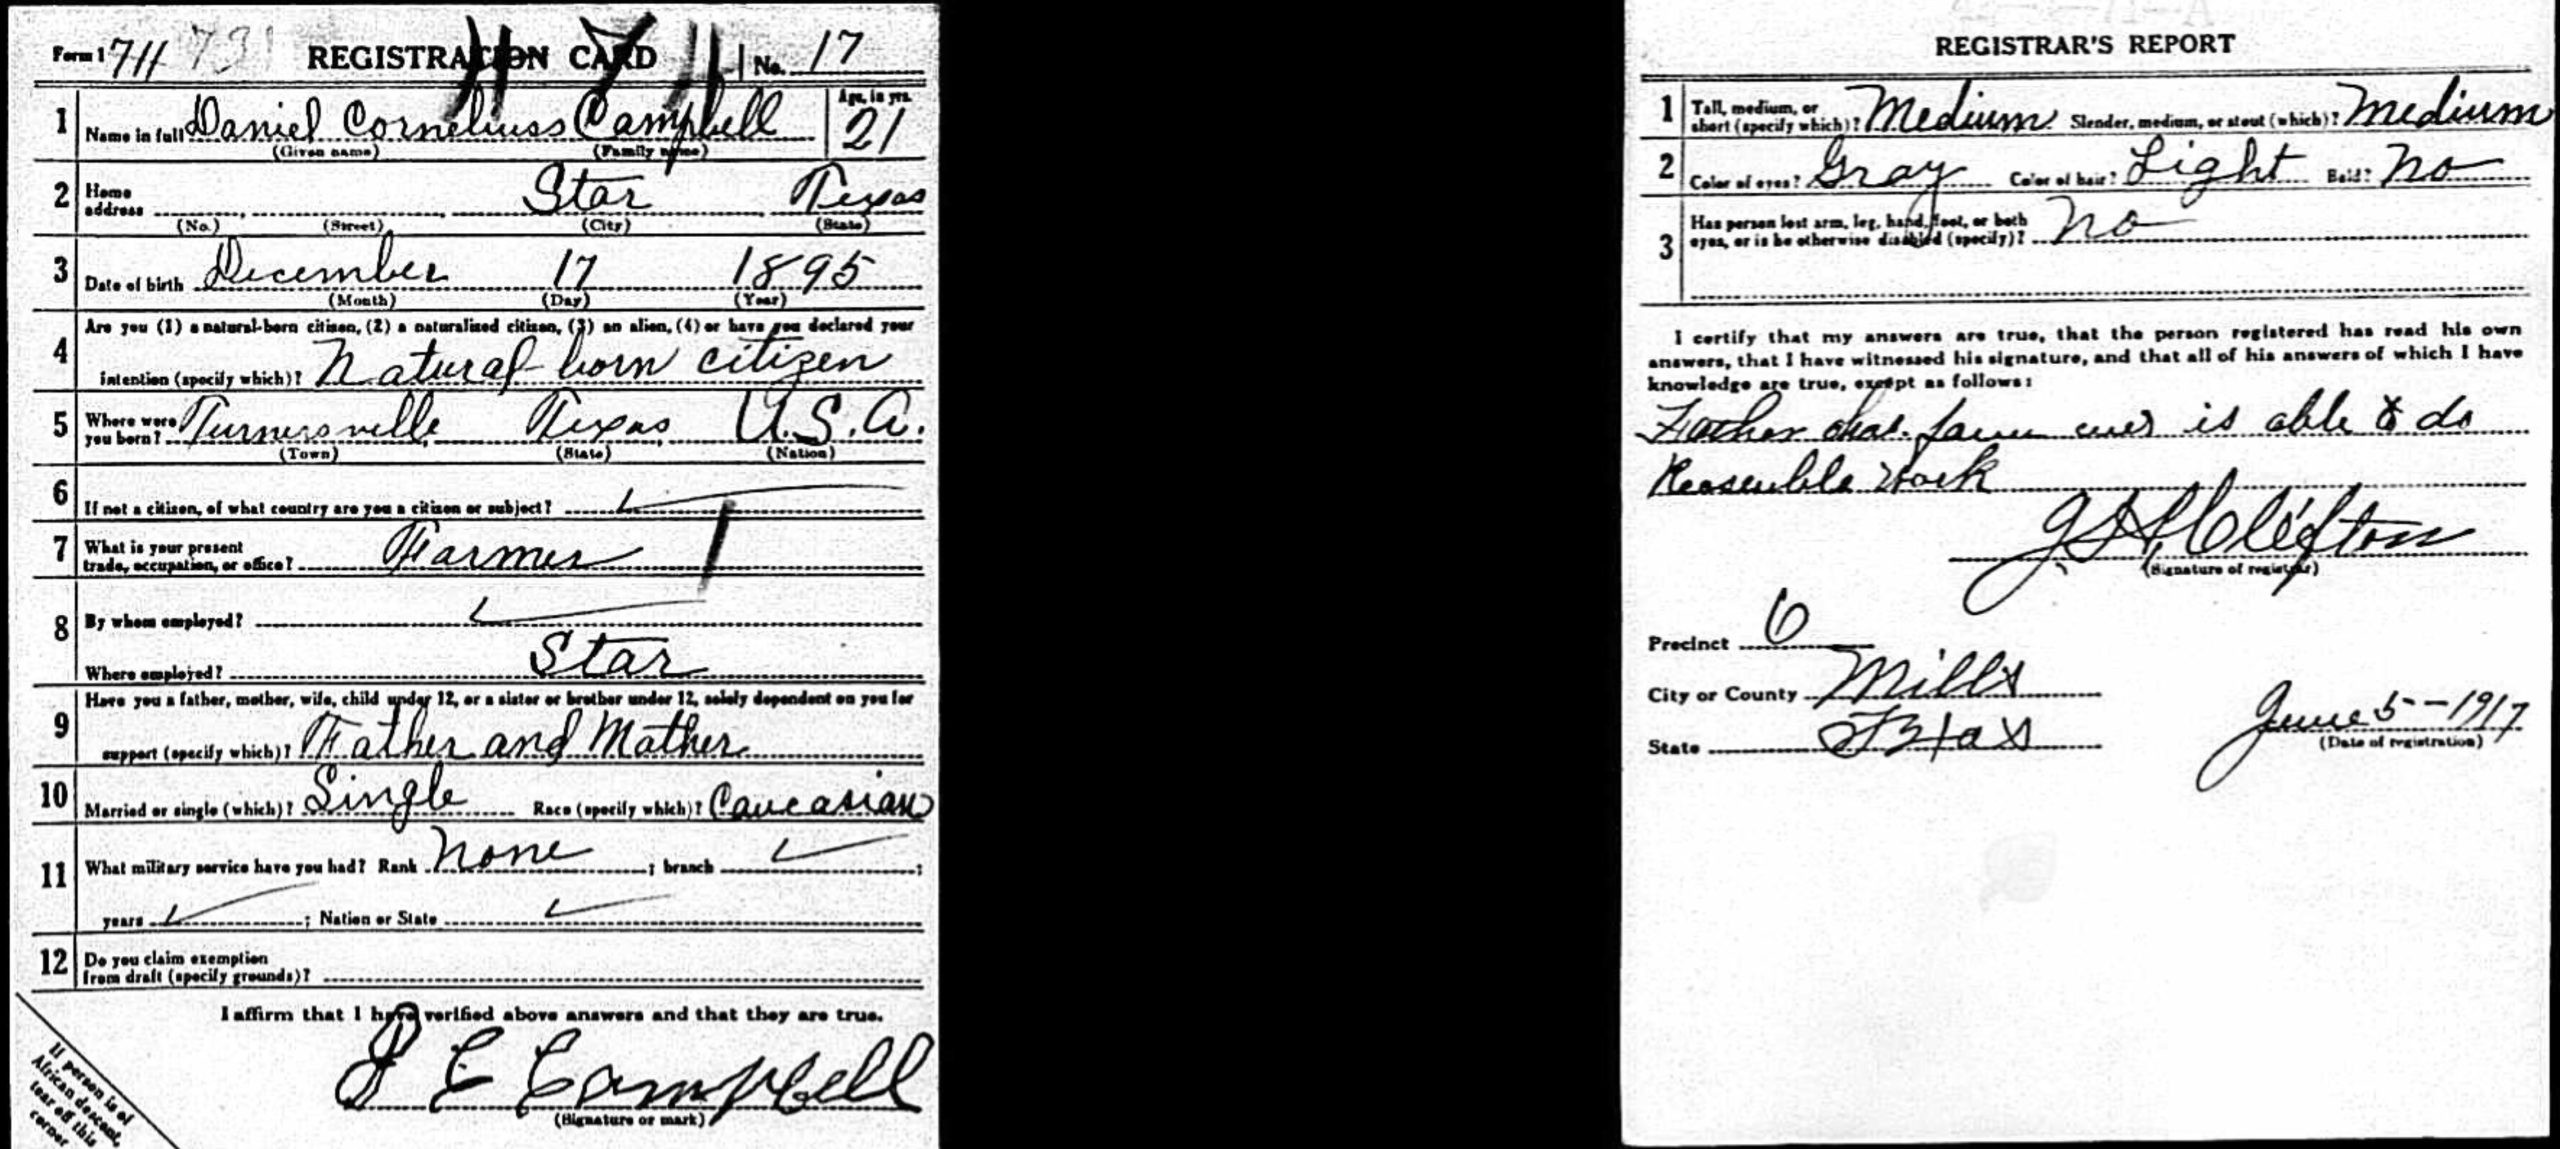 Form 1 711 731 REGISTRATION CARD No. 17
1 Name in full Daniel Corneliuss Campbell Age, in yrs. 21
(Given name) (Family name)
2 Home address Star Texas
(No.) (Street) (City) (State)
3 Date of birth December 17 1895
(Month) (Day) (Year)
4 Are you (1) a natural-born citizen, (2) a naturalized citizen, (3) an alien, (4) or have you declared your
intention (specify which)? Natural-born citizen
5 Where were you born? Turnersville Texas U.S.A.
(Town) (State) (Nation)
6 If not a citizen, of what country are you a citizen or subject?
7 What is your present trade, occupation, or office? Farmer
8 By whom employed?
Where employed? Star
9 Have you a father, mother, wife, child under 12, or a sister or brother under 12, solely dependent on you for
support (specify which)? Father and Mother
10 Married or single (which)? Single Race (specify which)? Caucasian
11 What military service have you had? Rank None ; branch ;
years ; Nation or State
12 Do you claim exemption
from draft (specify grounds)?
I affirm that I have verified above answers and that they are true.
D C Campbell
(Signature or mark)
If person is of
African descent,
tear off this
corner
REGISTRAR'S REPORT
1 Tall, medium, or short (specify which)? Medium Slender, medium, or stout (which)? Medium
2 Color of eyes? Gray Color of hair? Light Bald? No
3 Has person lost arm, leg, hand, foot, or both
eyes, or is he otherwise disabled (specify)? No
I certify that my answers are true, that the person registered has read his own
answers, that I have witnessed his signature, and that all of his answers of which I have
knowledge are true, except as follows:
Father is able to do
Work
Clifton
(Signature of registrar)
Precinct 6
City or County Mills
State Texas
June 5-1917
(Date of registration)